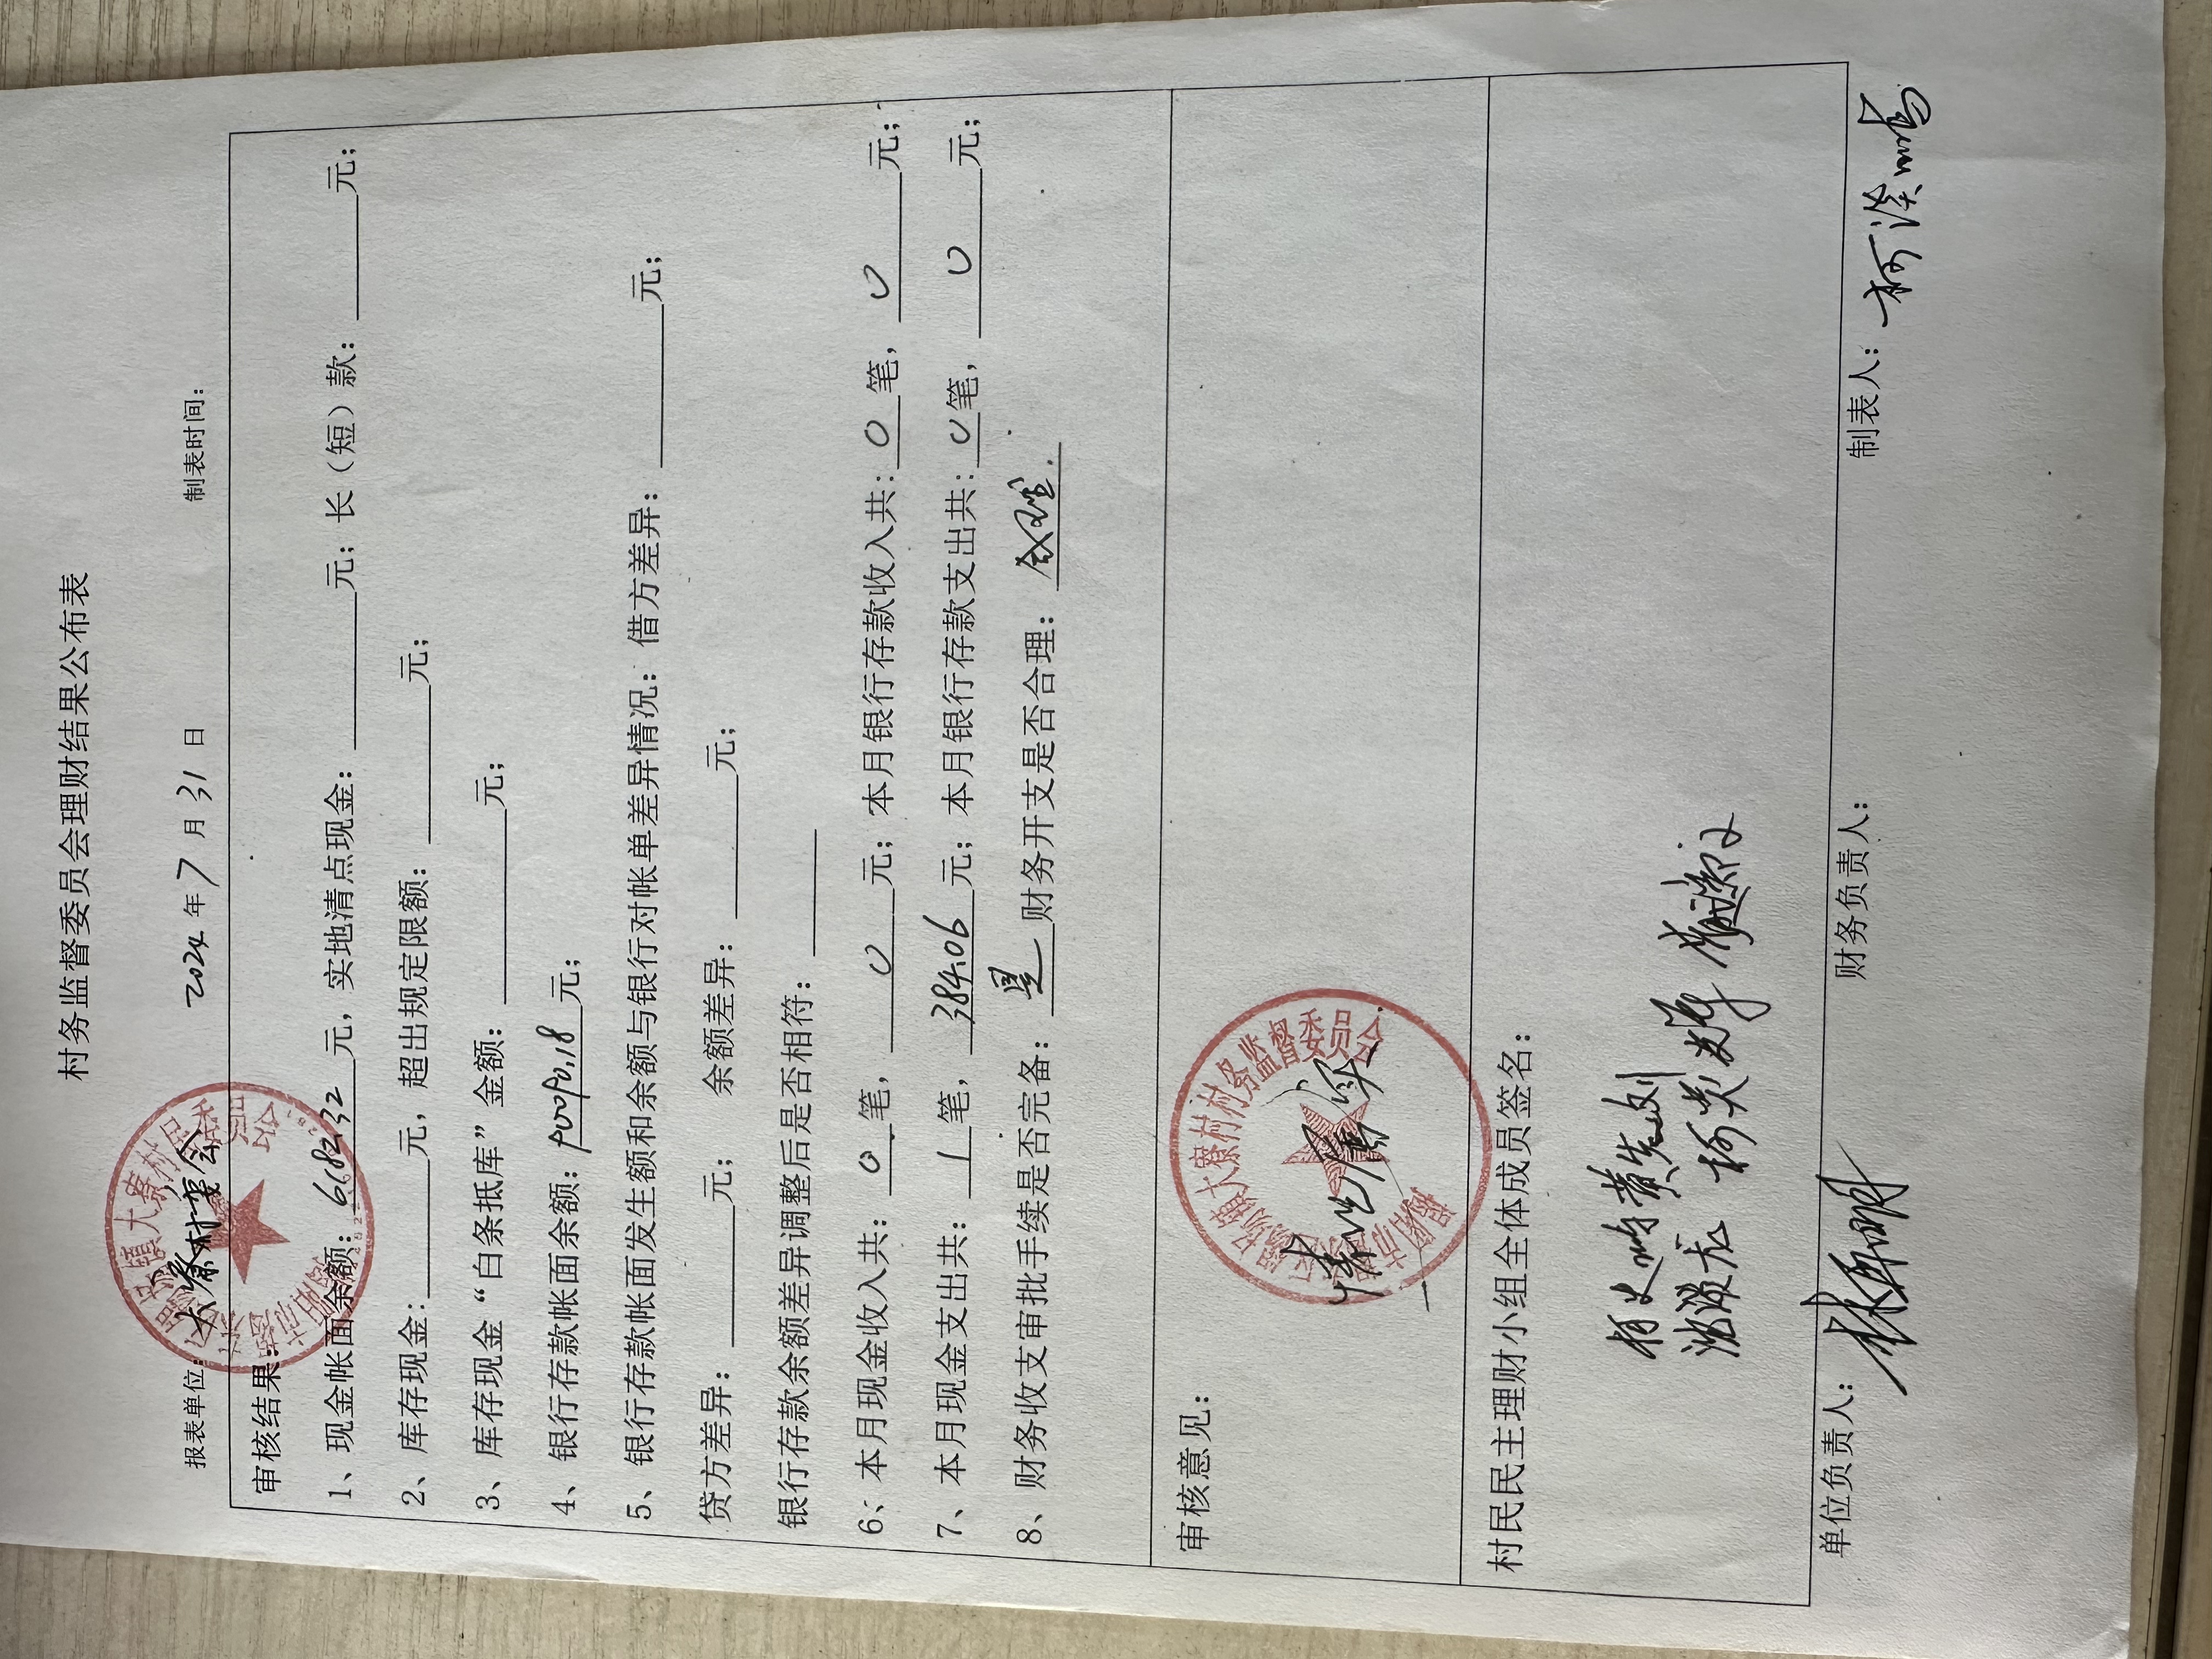 村务监督委员会理财结果公布表
报表单位：大寮村委会 2024年7月31日 制表时间：
审核结果：
1、现金帐面余额：6182.32元，实地清点现金：元；长（短）款：元；
2、库存现金：元，超出规定限额：元；
3、库存现金“白条抵库”金额：元；
4、银行存款帐面余额：元；
5、银行存款帐面发生额和余额与银行对帐单差异情况：借方差异：元；
贷方差异：元； 余额差异：元；
银行存款余额差异调整后是否相符：
6、本月现金收入共：0笔，0元；本月银行存款收入共：0笔，0元；
7、本月现金支出共：1笔，384.06元；本月银行存款支出共：0笔，0元；
8、财务收支审批手续是否完备：是 财务开支是否合理：合理.
审核意见：
情况属实
大寮村村务监督委员会
村民民主理财小组全体成员签名：
单位负责人： 财务负责人： 制表人：